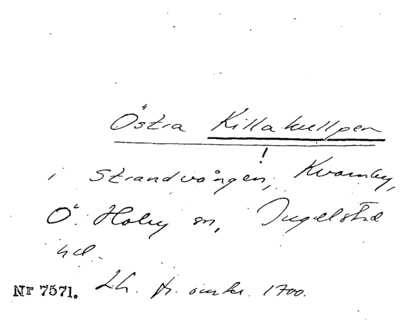 Östra Killakullpen
!
i Strandvången, Kvarnby,
Ö. Hoby sn, Ingelstad
hd.
Nr 7571. Lh. fr. omkr. 1700.